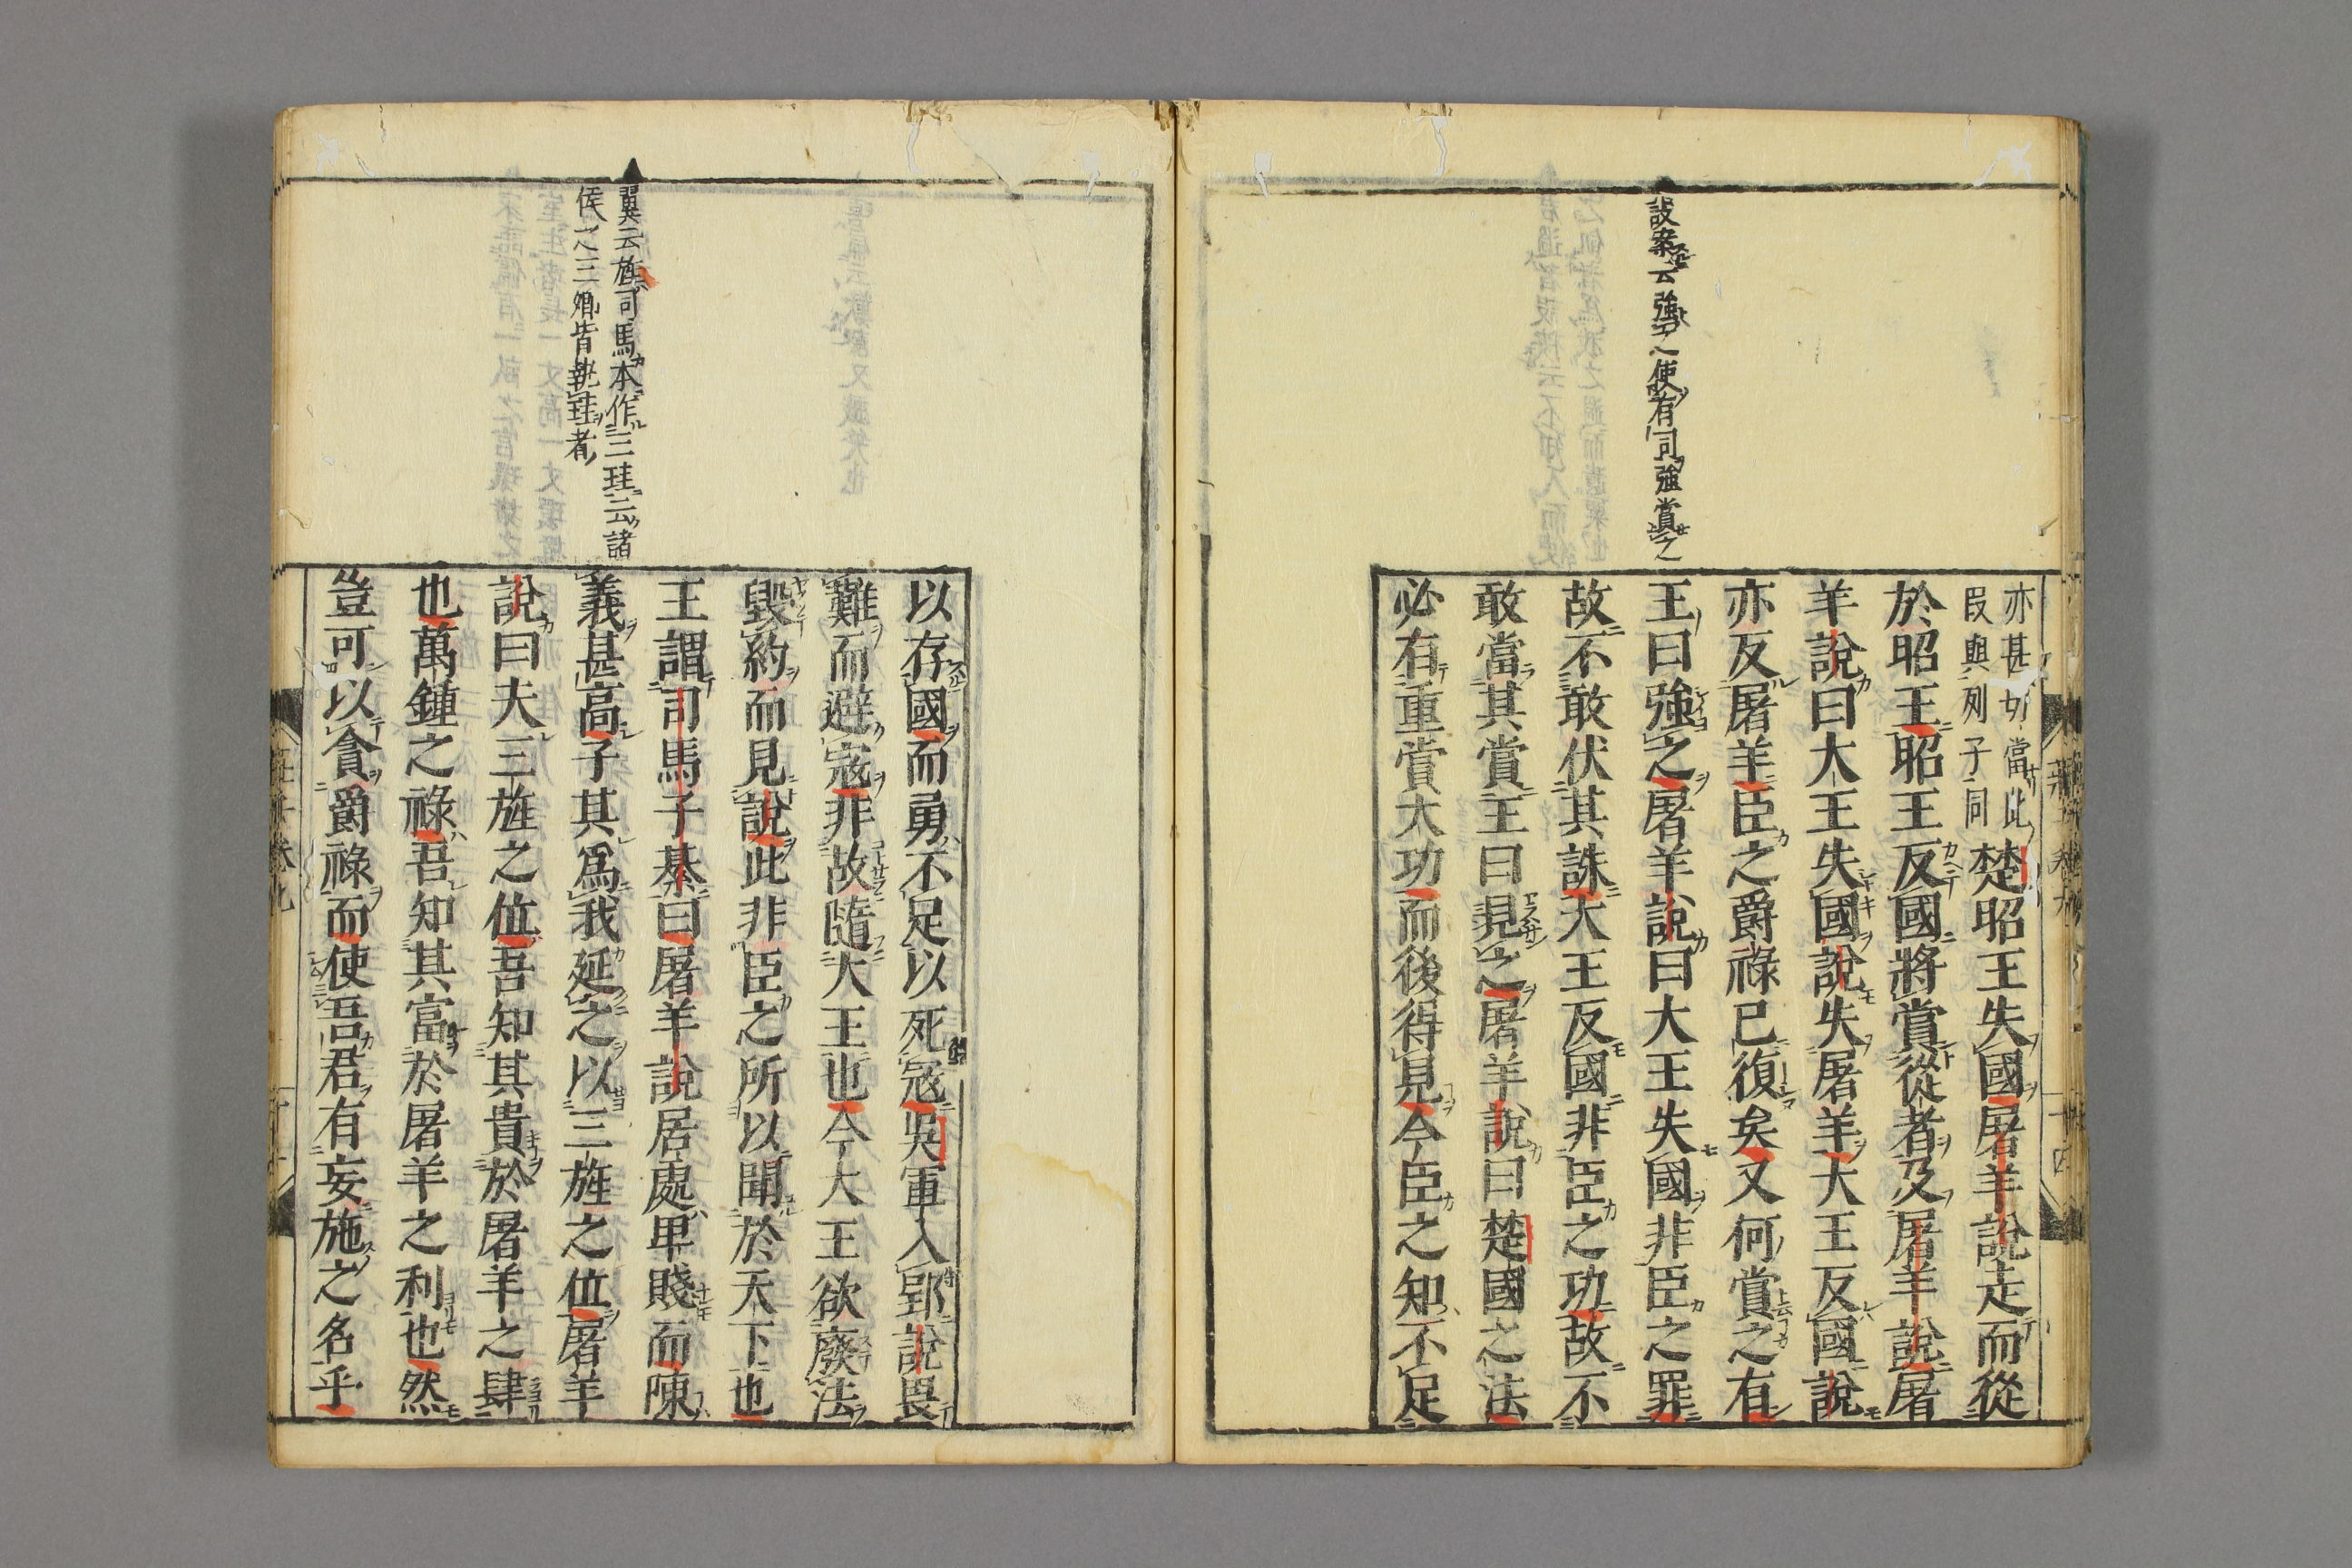 亦甚切當此
段與列子同
楚昭王失國屠羊說走而從
於昭王昭王反國將賞從者及屠羊說屠
羊說曰大王失國說失屠羊大王反國說
亦反屠羊臣之爵祿已復矣又何賞之有
王曰強之屠羊說曰大王失國非臣之罪
故不敢伏其誅大王反國非臣之功故不
敢當其賞王曰見之屠羊說曰楚國之法
必有重賞大功而後得見今臣之知不足
云強之使有司強賞之
以存國而勇不足以死寇吳軍入郢說畏
難而避寇非故隨大王也今大王欲廢法
毀約而見說此非臣之所以聞於天下也
王謂司馬子綦曰屠羊說居處卑賤而陳
義甚高子其為我延之以三旌之位屠羊
說曰夫三旌之位吾知其貴於屠羊之肆
也萬鍾之祿吾知其富於屠羊之利也然
豈可以貪爵祿而使吾君有妄施之名乎
翼云旌司馬本作三珪云諸
侯之三卿皆執珪者